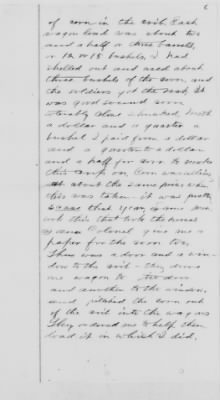 6
of corn in the crib. Each
wagon load was about two
and a half or three barrels,
or 12 or 15 bushels. I had
shelled out and used about
three bushels of the corn and
the soldiers got the rest. It
was good sound corn
worth
a dollar and a quarter
bushel. I just gave a dollar
and a quarter to a dollar
and a half for corn to make
this crop on. Corn was selling
at about the same price when
this was taken. It was pretty
scarce that year. The same
Colonel give me a
paper for the corn too.
There was a door and a win-
dow to the crib. They drove
one wagon to the door
and another to the window,
and pitched the corn out
of the crib into the wagons
They ordered me to help them
load it in which I did.